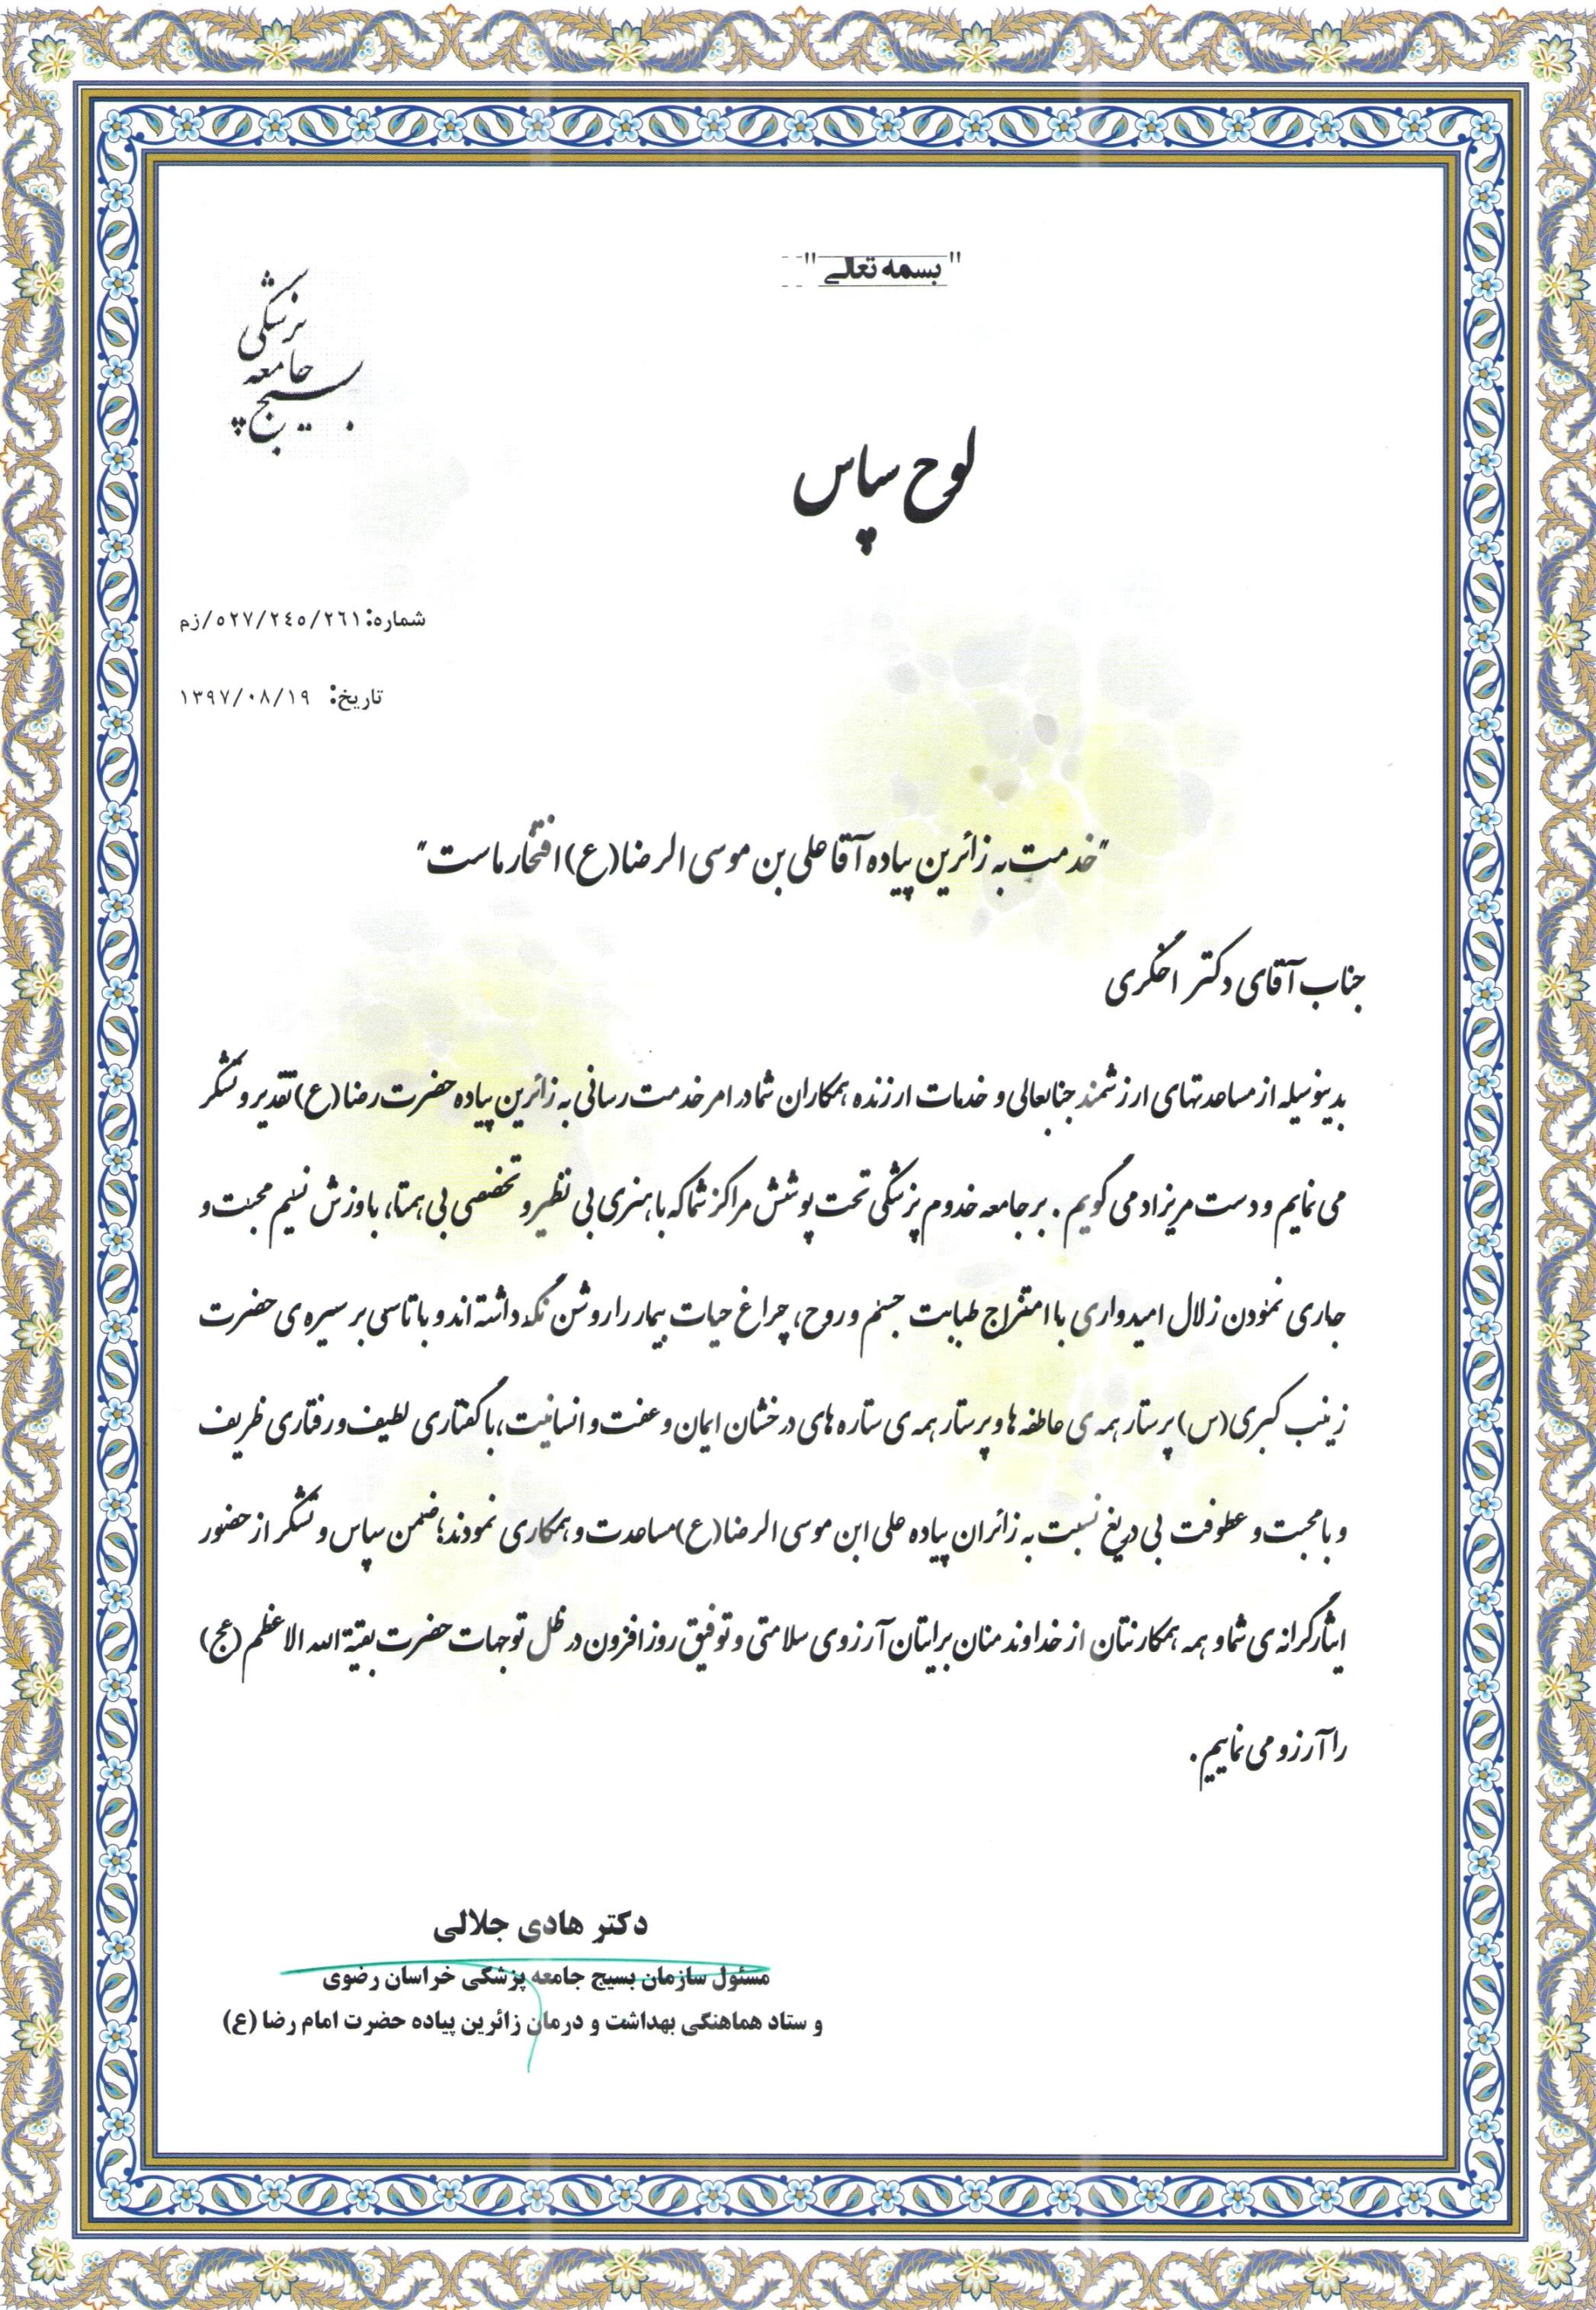 " بسمه تعالی "
بسیج جامعه پزشکی
لوح سپاس
شماره: ۵۲۷/۲۴۵/۲۶۱/زم
تاریخ: ۱۳۹۷/۰۸/۱۹
"خدمت به زائرین پیاده آقا علی بن موسی الرضا(ع) افتخار ماست"
جناب آقای دکتر اخگری
بدینوسیله از مساعدتهای ارزشمند جنابعالی و خدمات ارزنده همکاران شما در امر خدمت رسانی به زائرین پیاده حضرت رضا(ع) تقدیر و تشکر
می نمایم و دست مریزاد می گویم . بر جامعه خدوم پزشکی تحت پوشش مراکز شما که با هنری بی نظیر و تخصصی بی همتا، با وزش نسیم محبت و
جاری نمودن زلال امیدواری با امتزاج طبابت جسم و روح، چراغ حیات بیمار را روشن نگه داشته اند و با تاسی بر سیره ی حضرت
زینب کبری(س) پرستار همه ی عاطفه ها و پرستار همه ی ستاره های درخشان ایمان و عفت و انسانیت، با گفتاری لطیف و رفتاری ظریف
و با محبت و عطوفت بی دریغ نسبت به زائران پیاده علی ابن موسی الرضا(ع) مساعدت و همکاری نمودند؛ ضمن سپاس و تشکر از حضور
ایثارگرانه ی شما و همه همکارنتان از خداوند منان برایتان آرزوی سلامتی و توفیق روز افزون در ظل توجهات حضرت بقیة الله الاعظم (عج)
را آرزو می نماییم .
دکتر هادی جلالی
مسئول سازمان بسیج جامعه پزشکی خراسان رضوی
و ستاد هماهنگی بهداشت و درمان زائرین پیاده حضرت امام رضا (ع)